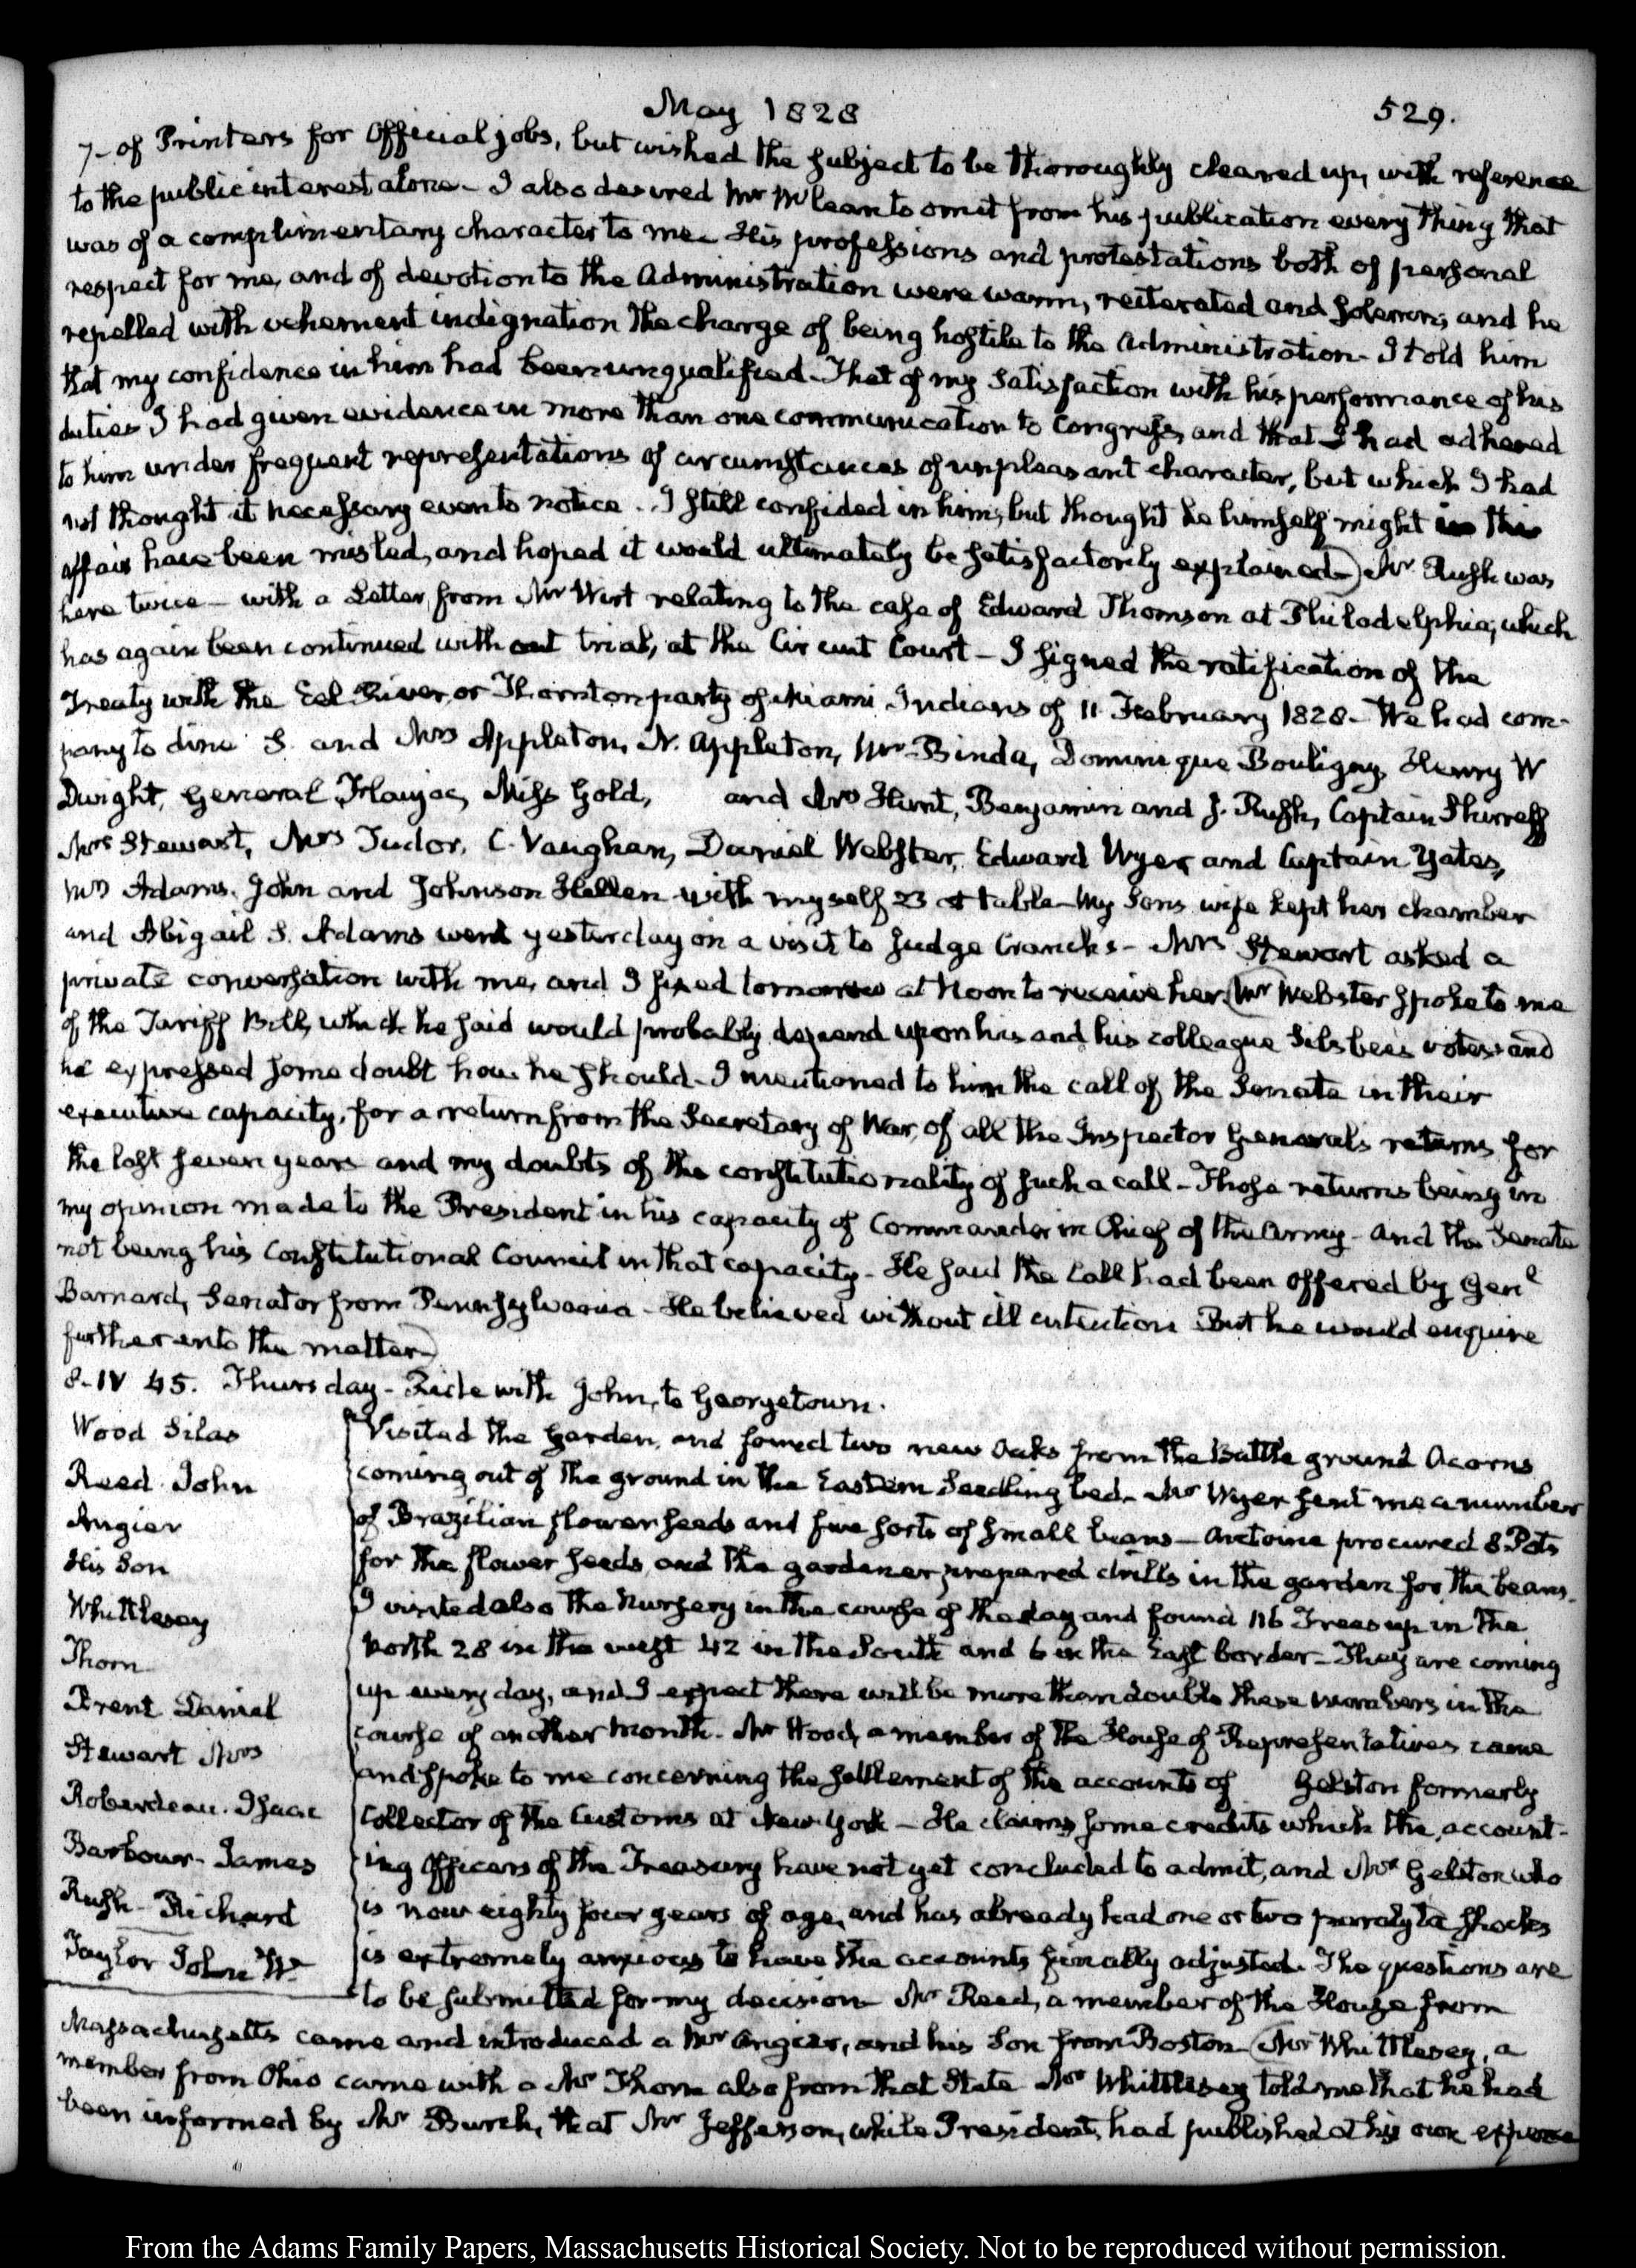 May 1828
529.
7— of Printers for Official jobs, but wished the subject to be thoroughly cleared up, with reference
to the public interest alone— I also desired Mr McLean to omit from his publication every thing that
was of a complimentary character to me— His professions and protestations both of personal
respect for me, and of devotion to the Administration were warm, reiterated and solemn; and he
repelled with vehement indignation the charge of being hostile to the Administration— I told him
that my confidence in him had been unqualified— That of my satisfaction with his performance of his
duties I had given evidence in more than one communication to Congress, and that I had adhered
to him under frequent representations of circumstances of unpleasant character, but which I had
not thought it necessary even to notice.. I still confided in him; but thought he himself might in this
affair have been misled, and hoped it would ultimately be satisfactorily explained—) Mr Rush was
here twice— with a Letter from Mr Wirt relating to the case of Edward Thomson at Philadelphia, which
has again been continued without trial, at the Circuit Court— I signed the ratification of the
Treaty with the Eel River, or Thornton party of Miami Indians of 11 February 1828— We had com-
pany to dine S. and Mrs Appleton, N. Appleton, Mr Binda, Dominique Bouligny, Henry W
Dwight, General Flaujac, Miss Gold, and Mrs Hunt, Benjamin and J. Rush, Captain Shirreff
Mrs Stewart, Mrs Tudor, C. Vaughan, Daniel Webster, Edward Wyer and Captain Yates,
Mrs Adams, John and Johnson Hellen with myself 23 at table— My Sons wife kept her chamber
and Abigail S. Adams went yesterday on a visit to Judge Cranch's— Mrs Stewart asked a
private conversation with me, and I fixed tomorrow at Noon to receive her. (Mr Webster spoke to me
of the Tariff Bill, which he said would probably depend upon his and his colleague Silsbee's votes; and
he expressed some doubt how he should— I mentioned to him the call of the Senate in their
executive capacity, for a return from the Secretary of War, of all the Inspector General's returns for
the last seven years and my doubts of the constitutionality of such a call— Those returns being in
my opinion made to the President in his capacity of Commander in Chief of the Army— and the Senate
not being his Constitutional Council in that capacity— He said the Call had been offered by Genl
Barnard, Senator from Pennsylvania— He believed without ill intention But he would enquire
further into the matter—)
8— IV 45. Thursday— Ride with John, to Georgetown.
Wood Silas
Reed John
Angier
His Son
Whittlesey
Thorn
Brent Daniel
Stewart Mrs
Roberdeau. Isaac
Barbour— James
Rush— Richard
Taylor John W.
Visited the Garden, and found two new Oaks from the Battle ground Acorns
coming out of the ground in the Eastern Seedling bed— Mr Wyer sent me a number
of Brazilian flower seeds and five sorts of small beans— Antoine procured 8 Pots
for the flower seeds, and the gardener prepared drills in the garden for the beans.
I visited also the Nursery in the course of the day and found 116 Trees up in the
North 28 in the west 42 in the South and 6 in the East border— They are coming
up every day, and I expect there will be more than double these numbers in the
course of another Month— Mr Wood, a member of the House of Representatives came
and spoke to me concerning the settlement of the accounts of Gelston formerly
Collector of the Customs at New York— He claims some credits which the account-
ing Officers of the Treasury have not yet concluded to admit, and Mr Gelston who
is now eighty four years of age, and has already had one or two paralytic shocks
is extremely anxious to have the accounts finally adjusted. The questions are
to be submitted for my decision Mr Reed, a member of the House from
Massachusetts came and introduced a Mr Angier, and his Son from Boston— (Mr Whittlesey, a
member from Ohio came with a Mr Thorn also from that State Mr Whittlesey told me that he had
been informed by Mr Burch, that Mr Jefferson, while President, had published at his own expense
From the Adams Family Papers, Massachusetts Historical Society. Not to be reproduced without permission.